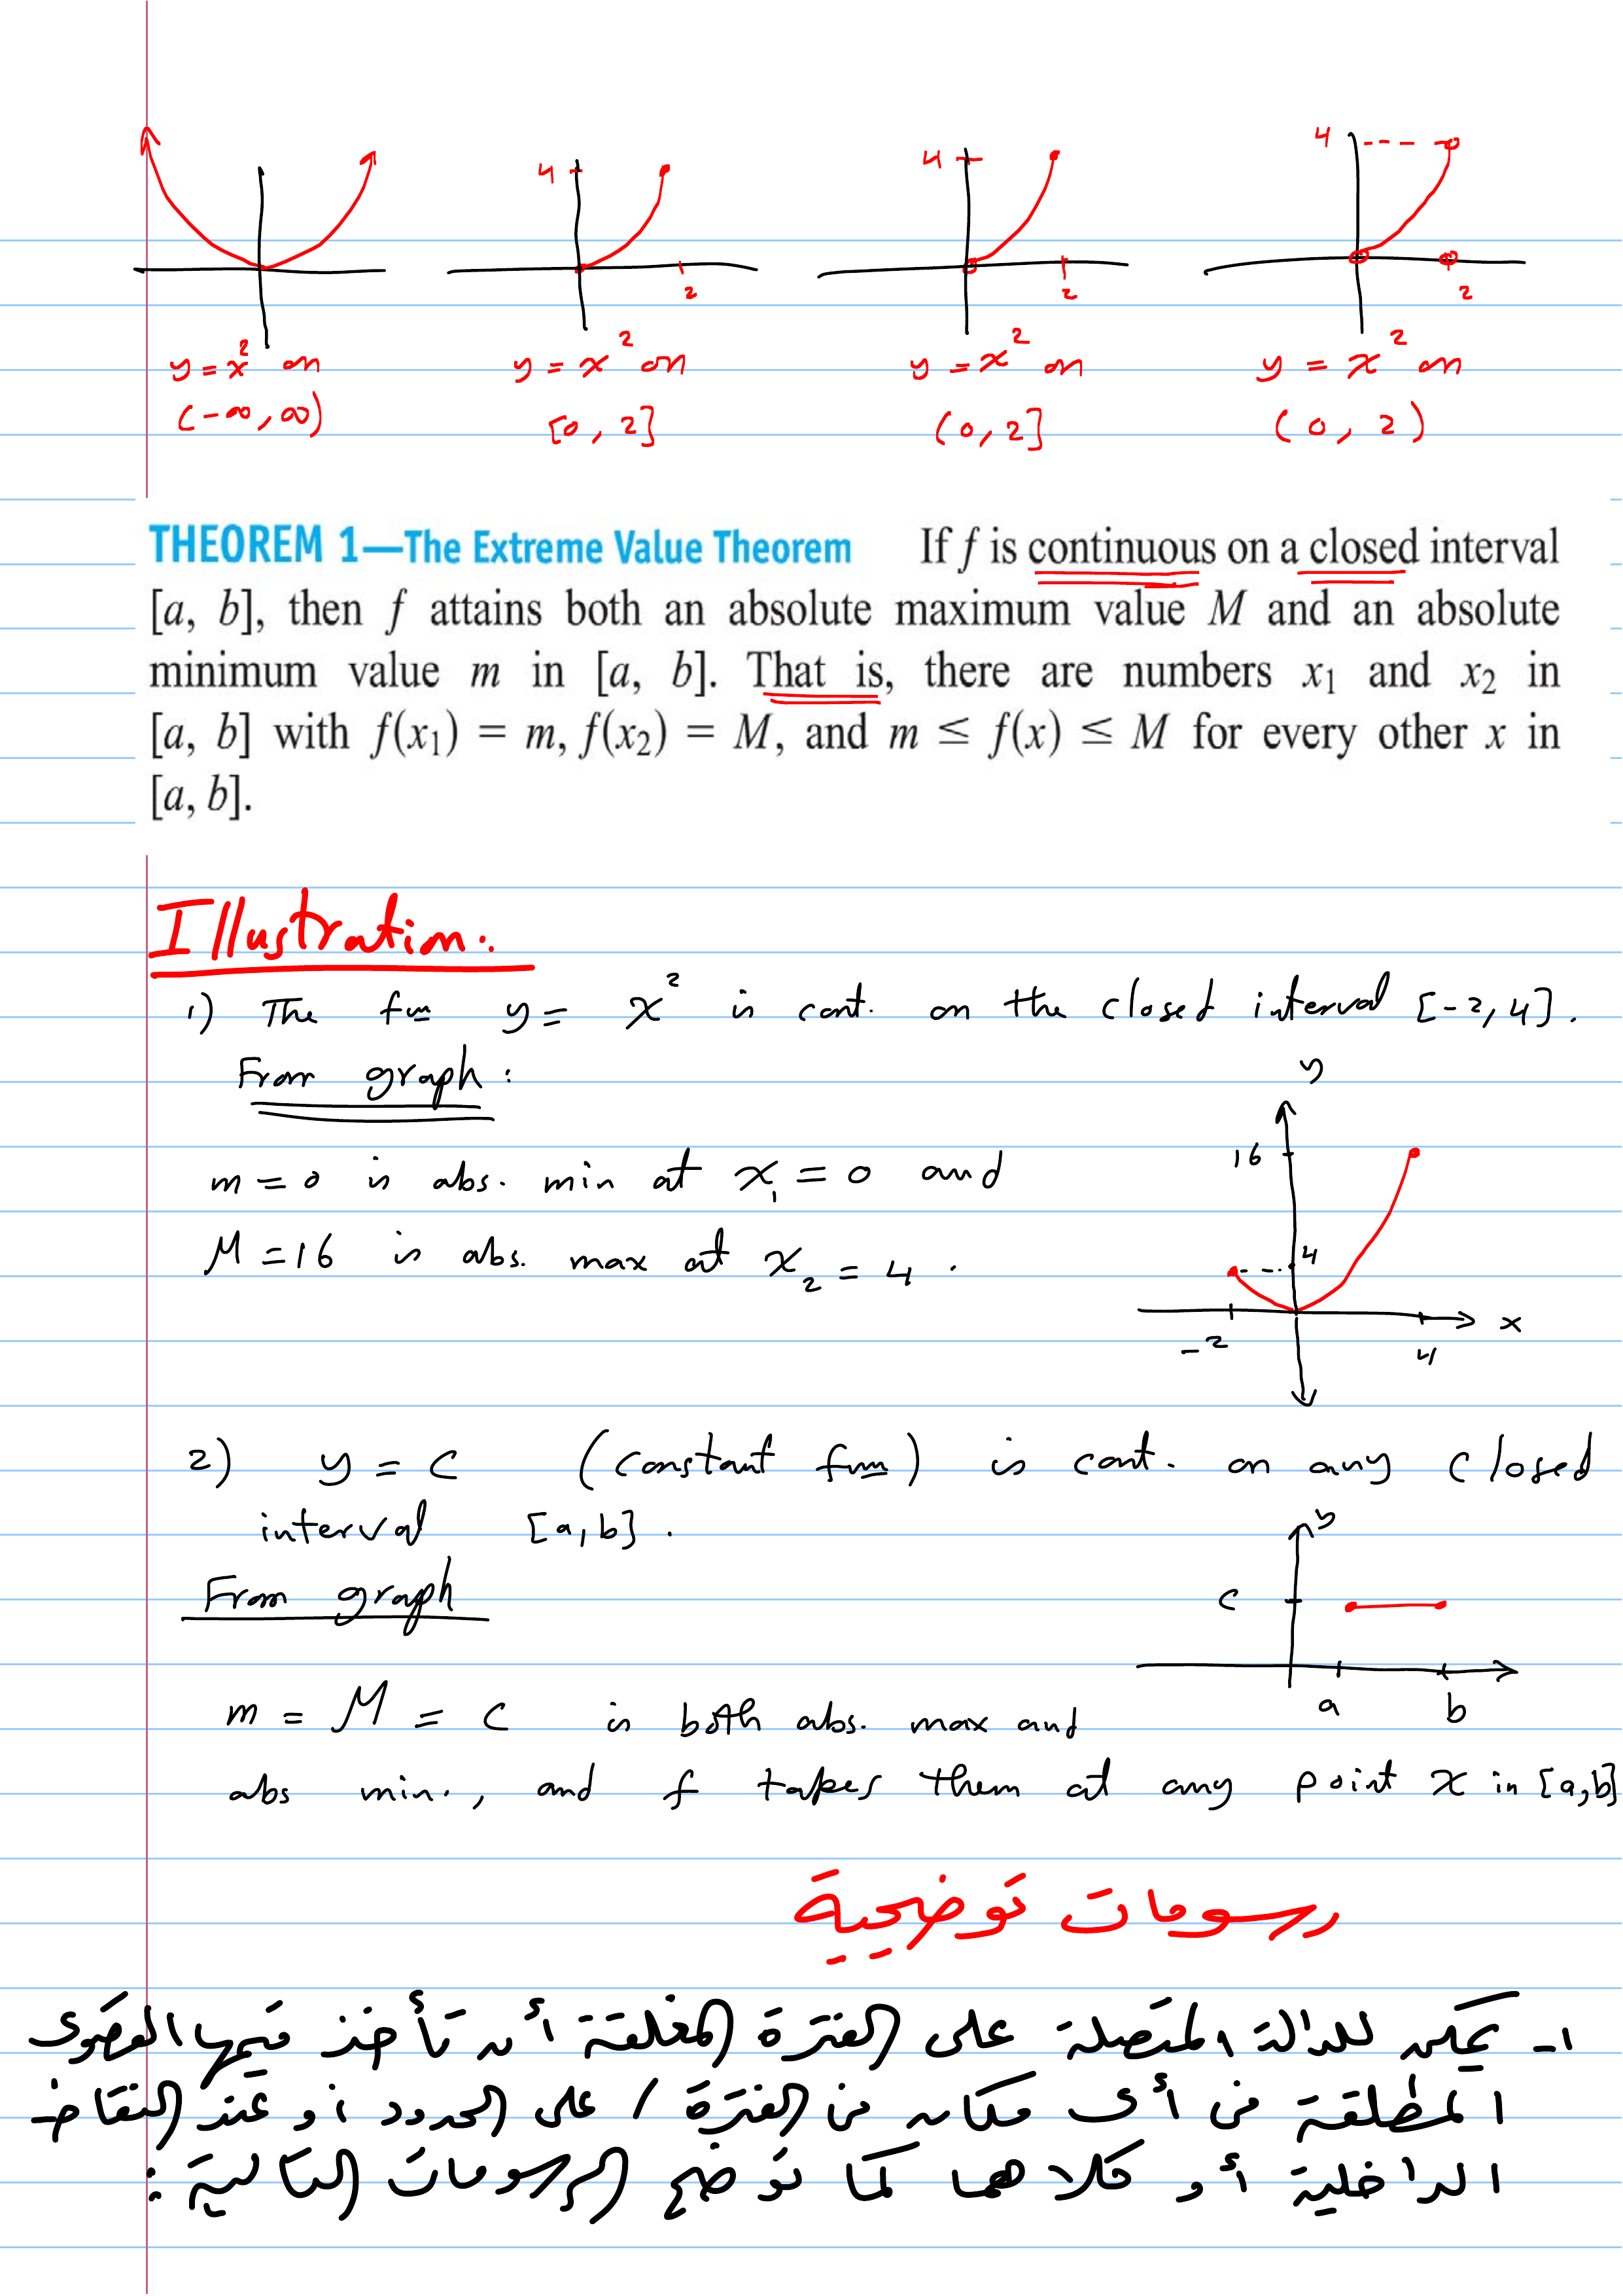 4 4 4
2 2 2
y = x² on y = x² on y = x² on y = x² on
(-∞, ∞) [0, 2] (0, 2] (0, 2)
THEOREM 1—The Extreme Value Theorem If f is continuous on a closed interval
[a, b], then f attains both an absolute maximum value M and an absolute
minimum value m in [a, b]. That is, there are numbers x₁ and x₂ in
[a, b] with f(x₁) = m, f(x₂) = M, and m ≤ f(x) ≤ M for every other x in
[a, b].
Illustration:
1) The fun y = x² is cont. on the closed interval [-2, 4].
From graph:
y
16
m = 0 is abs. min at x₁ = 0 and
M = 16 is abs. max at x₂ = 4.
4
x
-2 4
2) y = c (constant fun) is cont. on any closed
interval [a, b].
y
From graph
c
a b
m = M = c is both abs. max and
abs min., and f takes them at any point x in [a, b]
رسومات توضيحية
١- يمكن للدالة المتصلة على الفترة المغلقة أن تأخذ قيمها القصوى
المطلقة في أي مكان في الفترة / على الحدود أو عند النقاط
الداخلية أو كلاهما كما توضح الرسومات التالية: